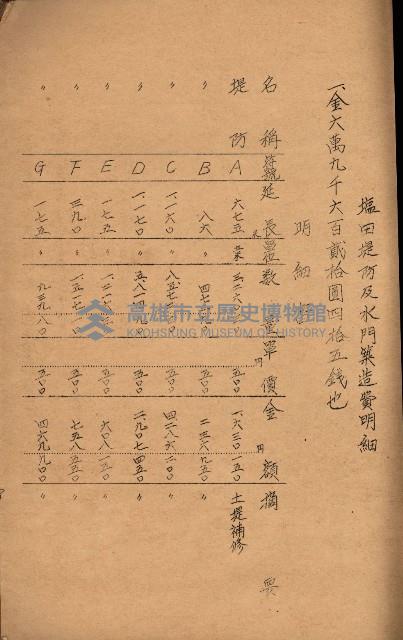 塩田堤防及水門築造費明細
一、金六萬九千六百貳拾圓四拾五錢也
明細
名稱 符號 延長 單位 數量 單價 金額 摘要
堤防 A 六七五 五〇〇 一、六三〇 一五〇 土堤補修
〃 B 八六 〃 五〇〇 〃
〃 C 一、一六〇 〃 五〇〇 〃
〃 D 一、一七〇 〃 五〇〇 二、九〇七 四五〇 〃
〃 E 一七五 〃 五〇〇 六〇八 一五〇 〃
〃 F 三九〇 〃 五〇〇 七五八 五五〇 〃
〃 G 一七五 〃 九三九 八〇 五〇〇 四六九 九〇〇 〃
高雄市立歷史博物館
KAOHSIUNG MUSEUM OF HISTORY